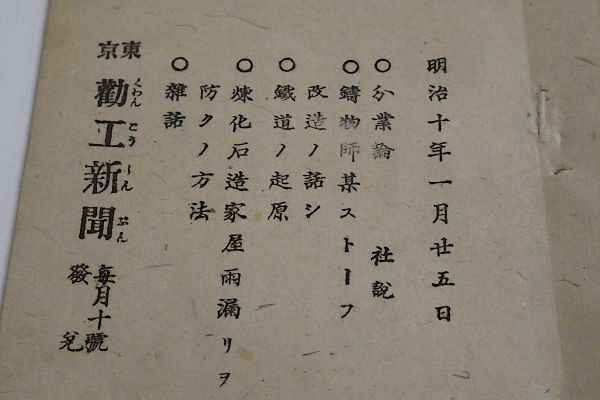 明治十年一月廿五日
○分業論 社説
○鋳物師某ストーフ
改造ノ話シ
○鐵道ノ起原
○煉化石造家屋雨漏リヲ
防クノ方法
○雜話
東京
勸工新聞
くわんこうしんぶん
毎月十號
發兌